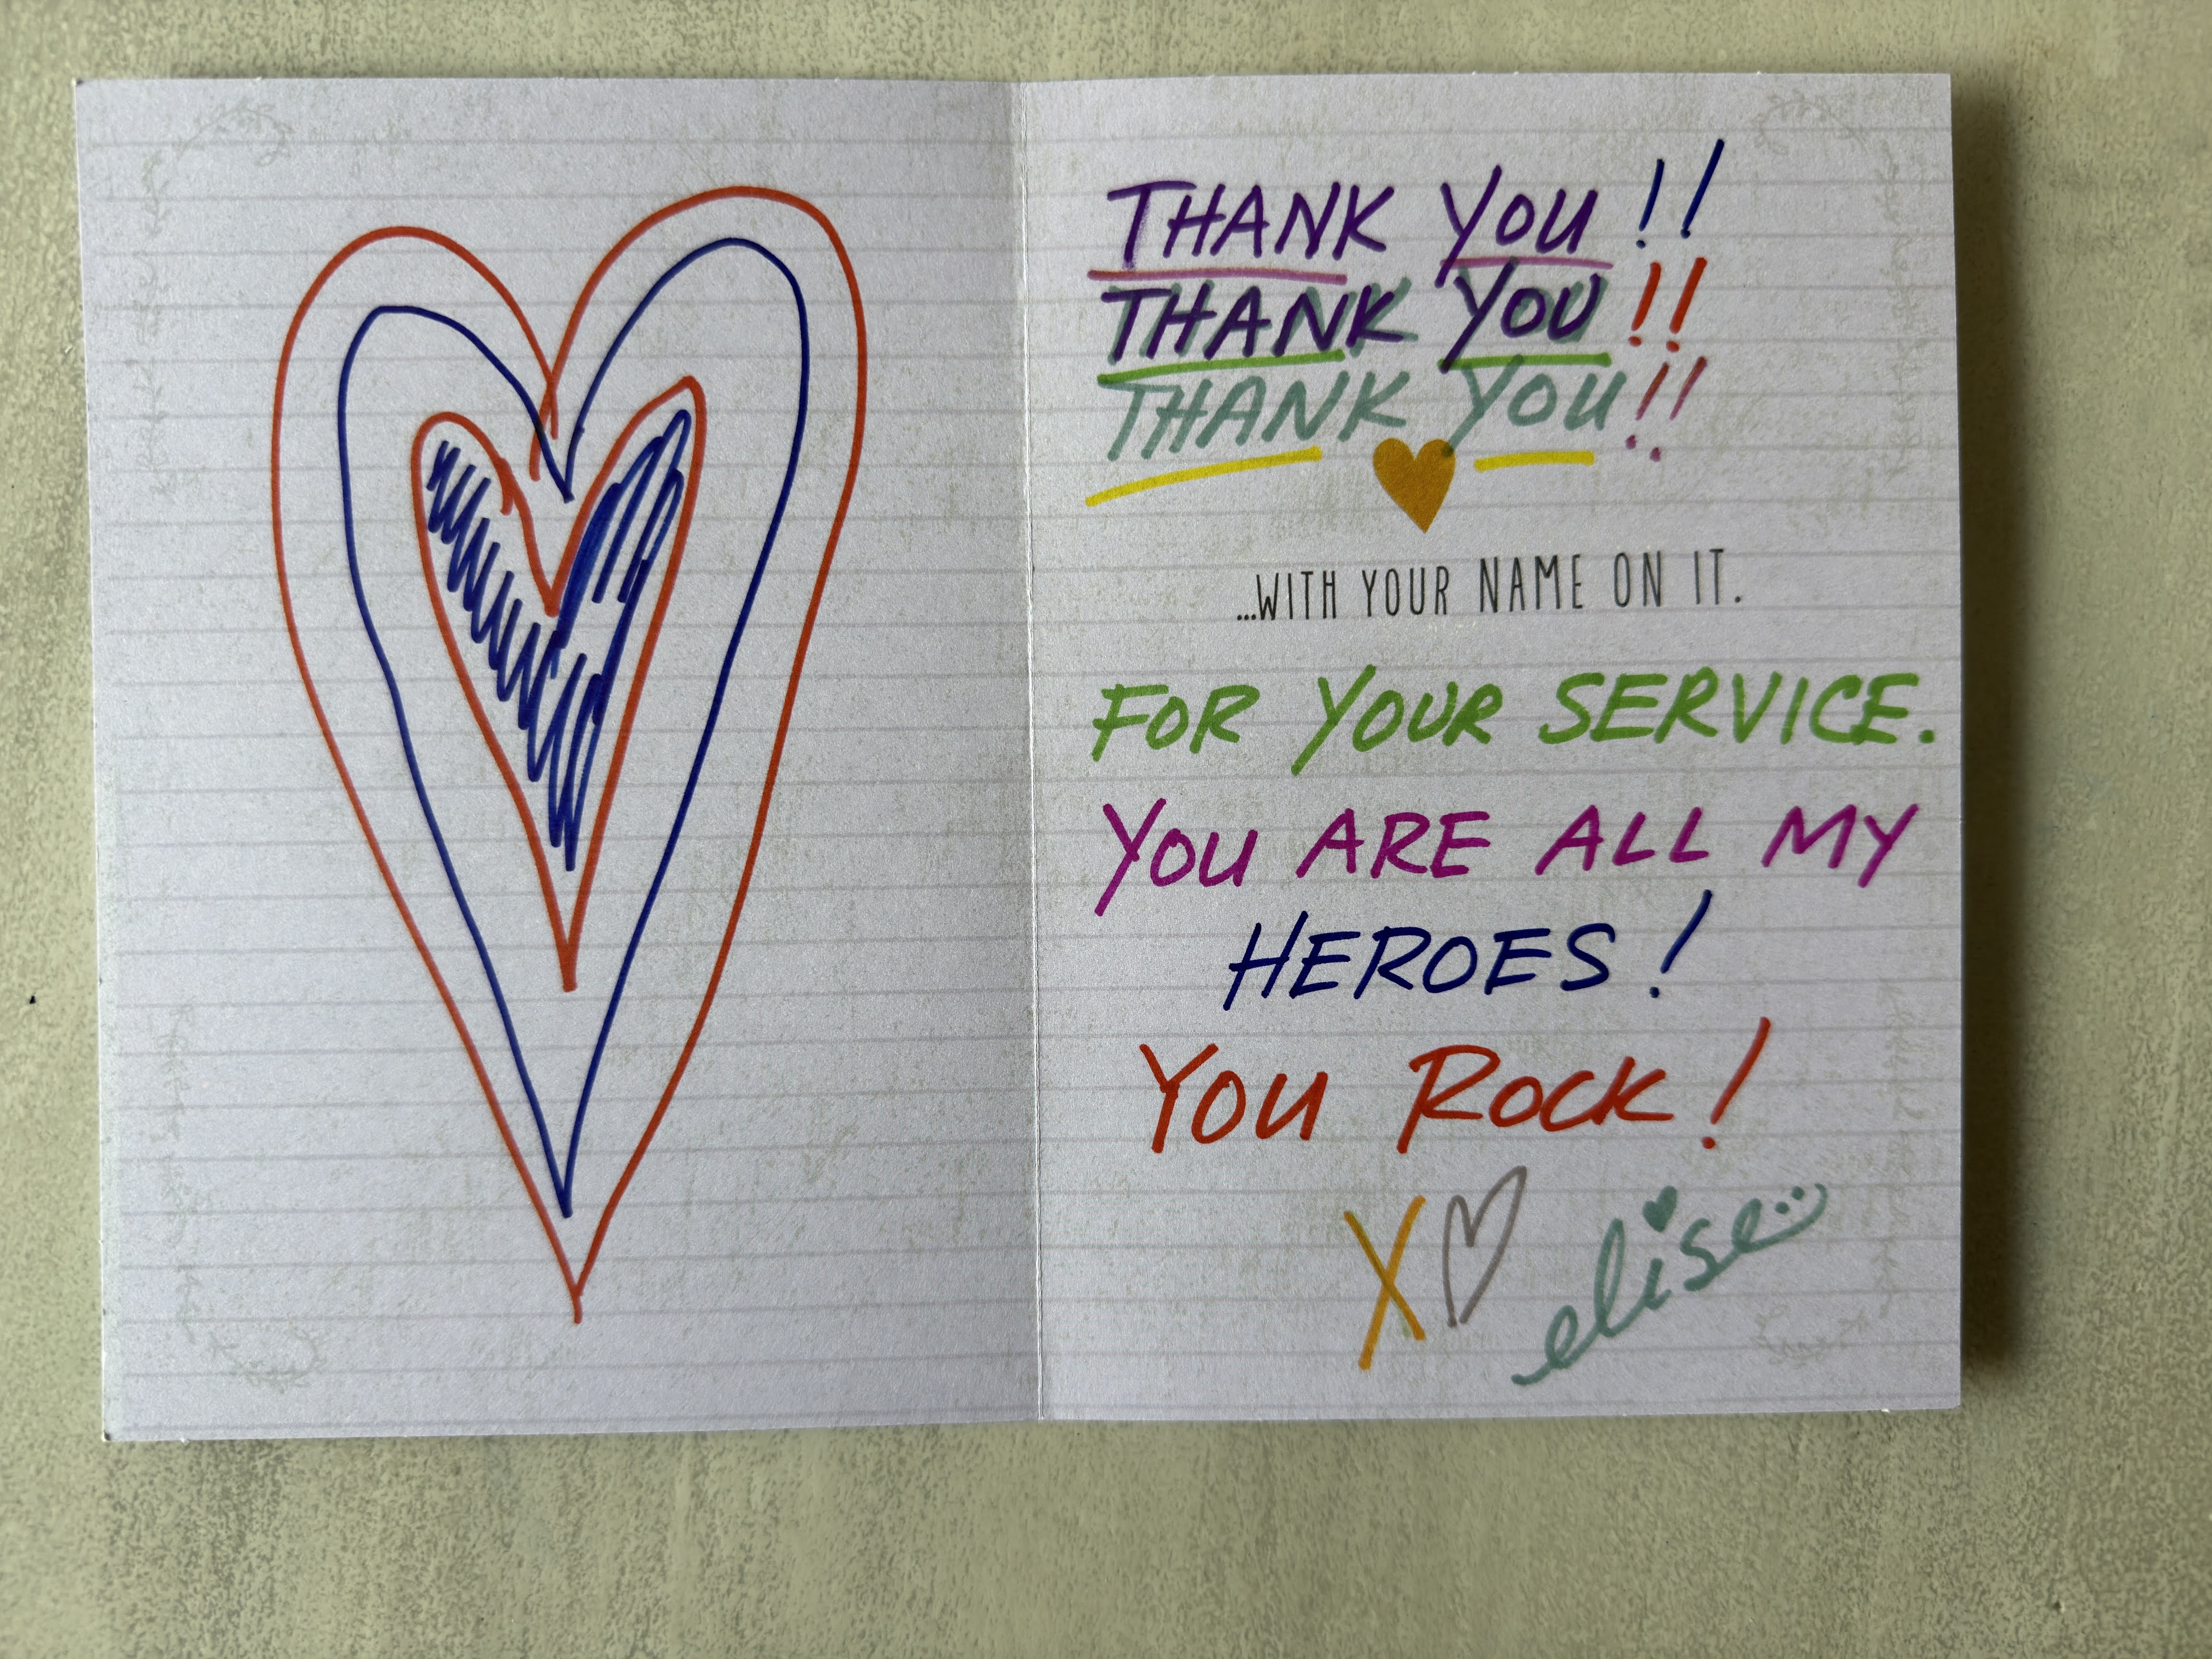 THANK YOU!!
THANK YOU!!
THANK YOU!!
...WITH YOUR NAME ON IT.
FOR YOUR SERVICE.
YOU ARE ALL MY
HEROES!
YOU ROCK!
X♡ elise